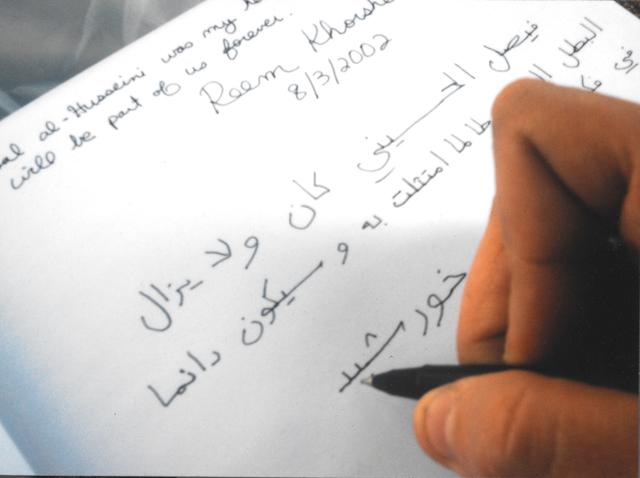 al al-Husseini was my
will be part of us forever.
Reem Khorshe
8/3/2002
فيصل الحسيني كان ولا يزال
البطل
طالما امتثلت به و سيكون دائما
في
خورشيد